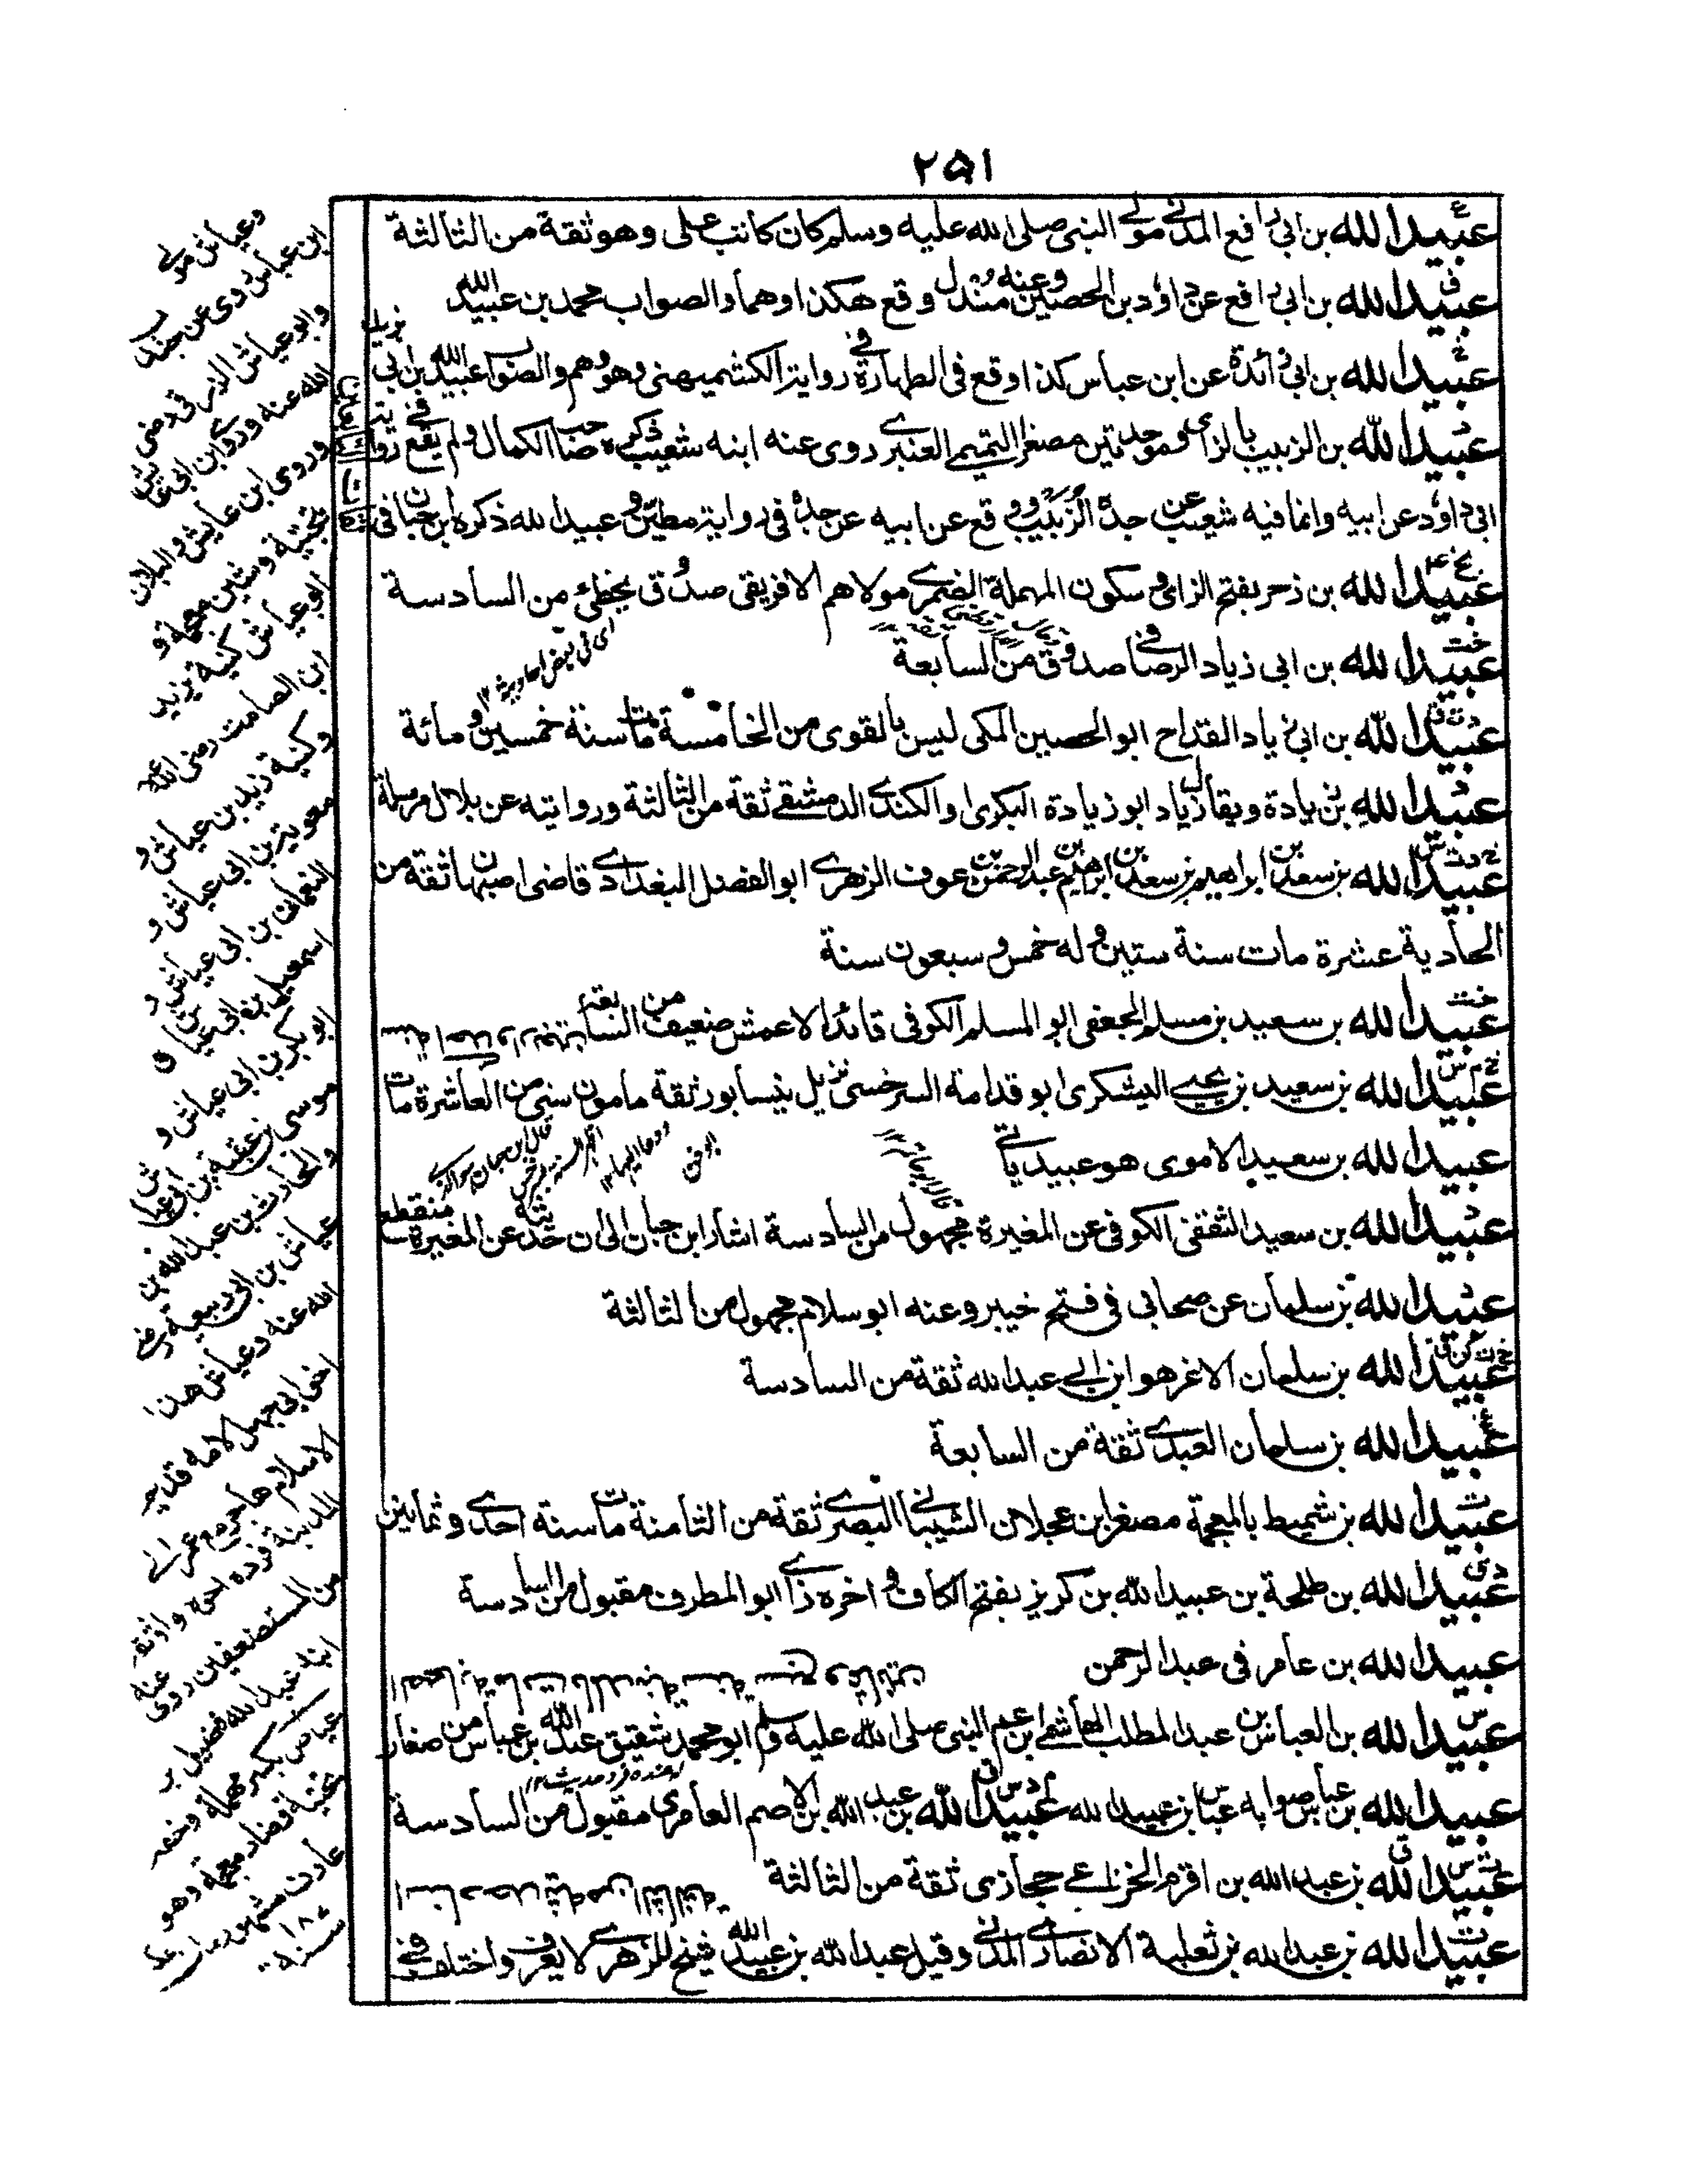 ٢٥١
عبيد الله بن ابى رافع المدنى مولى النبى صلى الله عليه وسلم كان كاتب على وهو ثقة من الثالثة
عبيد الله بن ابى رافع عن داود بن الحصين وعنه مندل وقع هكذا وهما والصواب محمد بن عبيد الله
عبيد الله بن ابى زائدة عن ابن عباس كذا وقع فى الطهارة فى رواية الكشميهنى وهو وهم والصواب عبيد الله بن ابى يزيد
عبيد الله بن الزبيب بالزاى وموحدتين مصغر التميمى العنبرى روى عنه ابنه شعيب ذكره صاحب الكمال ولم يقع فى رواية
ابى داود عن ابيه وانما فيه شعيب عن جده الزبيب ووقع عن ابيه عن جده فى رواية مطين وعبيد الله ذكره ابن حبان فى
عبيد الله بن زحر بفتح الزاى وسكون المهملة الضمرى مولاهم الافريقى صدوق يخطئ من السادسة
عبيد الله بن ابى زياد الرصافى صدوق من السابعة
عبيد الله بن ابى زياد القداح ابو الحصين المكى ليس بالقوى من الخامسة مات سنة خمسين ومائة
عبيد الله بن زيادة ويقال زياد ابو زيادة البكرى او الكندى الدمشقى ثقة من الثالثة وروايته عن بلال مرسلة
عبيد الله بن سعد بن ابراهيم بن سعد بن ابراهيم بن عبد الرحمن بن عوف الزهرى ابو الفضل البغدادى قاضى اصبهان ثقة من
الحادية عشرة مات سنة ستين وله خمس وسبعون سنة
عبيد الله بن سعيد بن مسلم الجعفى ابو المسلم الكوفى قائد الاعمش ضعيف من السابعة
عبيد الله بن سعيد بن يحيى اليشكرى ابو قدامة السرخسى نزيل نيسابور ثقة مامون سنى من العاشرة مات
عبيد الله بن سعيد الاموى هو عبيد ياتى
عبيد الله بن سعيد الثقفى الكوفى عن المغيرة مجهول من السادسة اشار ابن حبان الى ان حديثه عن المغيرة منقطع
عبيد الله بن سلمان عن صحابى فى فتح خيبر وعنه ابو سلام مجهول من الثالثة
عبيد الله بن سلمان الاغر هو ابن ابى عبد الله ثقة من السادسة
عبيد الله بن سلمان العبدى ثقة من السابعة
عبيد الله بن شميط بالمعجمة مصغر ابن عجلان الشيبانى البصرى ثقة من الثامنة مات سنة احدى وثمانين
عبيد الله بن طلحة بن عبيد الله بن كريز بفتح الكاف واخره زاى ابو المطرف مقبول من السادسة
عبيد الله بن عامر فى عبد الرحمن
عبيد الله بن العباس بن عبد المطلب الهاشمى ابن عم النبى صلى الله عليه وسلم ابو محمد شقيق عبد الله بن عباس من صغار
الصحابة مات بالمدينة سنة سبع وثمانين
عبيد الله بن عباس صوابه عباس بن عبيد الله عبيد الله بن عبد الله بن الاصم العامرى مقبول من السادسة
عبيد الله بن عبد الله بن اقرم الخزاعى حجازى ثقة من الثالثة
عبيد الله بن عبد الله بن ثعلبة الانصارى المدنى وقيل عبد الله بن عبيد الله شيخ للزهرى لا يعرف واختلف فى
وعياش مولى
ابن عباس روى عن جندب
وابو عياش الزرقى رضى
الله عنه وروى ابن ابى عائش
وروى ابن عايش والبلان
بتحتية وشين معجمة و
ابو عياش كنية يزيد
ابن الصامت رضى الله عنه
وكنية زيد بن عياش و
معوية بن ابى عياش و
النعمان بن ابى عياش و
اسمعيل بن ابى عياش و
ابو بكر بن ابى عياش و
موسى بن عقبة بن ابى عياش
والحارث بن عبد الله بن
عياش بن ابى ربيعة رضى
الله عنه وعياش هذا
اخى ابى جهل لامه قديم
الاسلام هاجر مع عمر الى
المدينة فرده اخوه واوثقه
من المستضعفين روى عنه